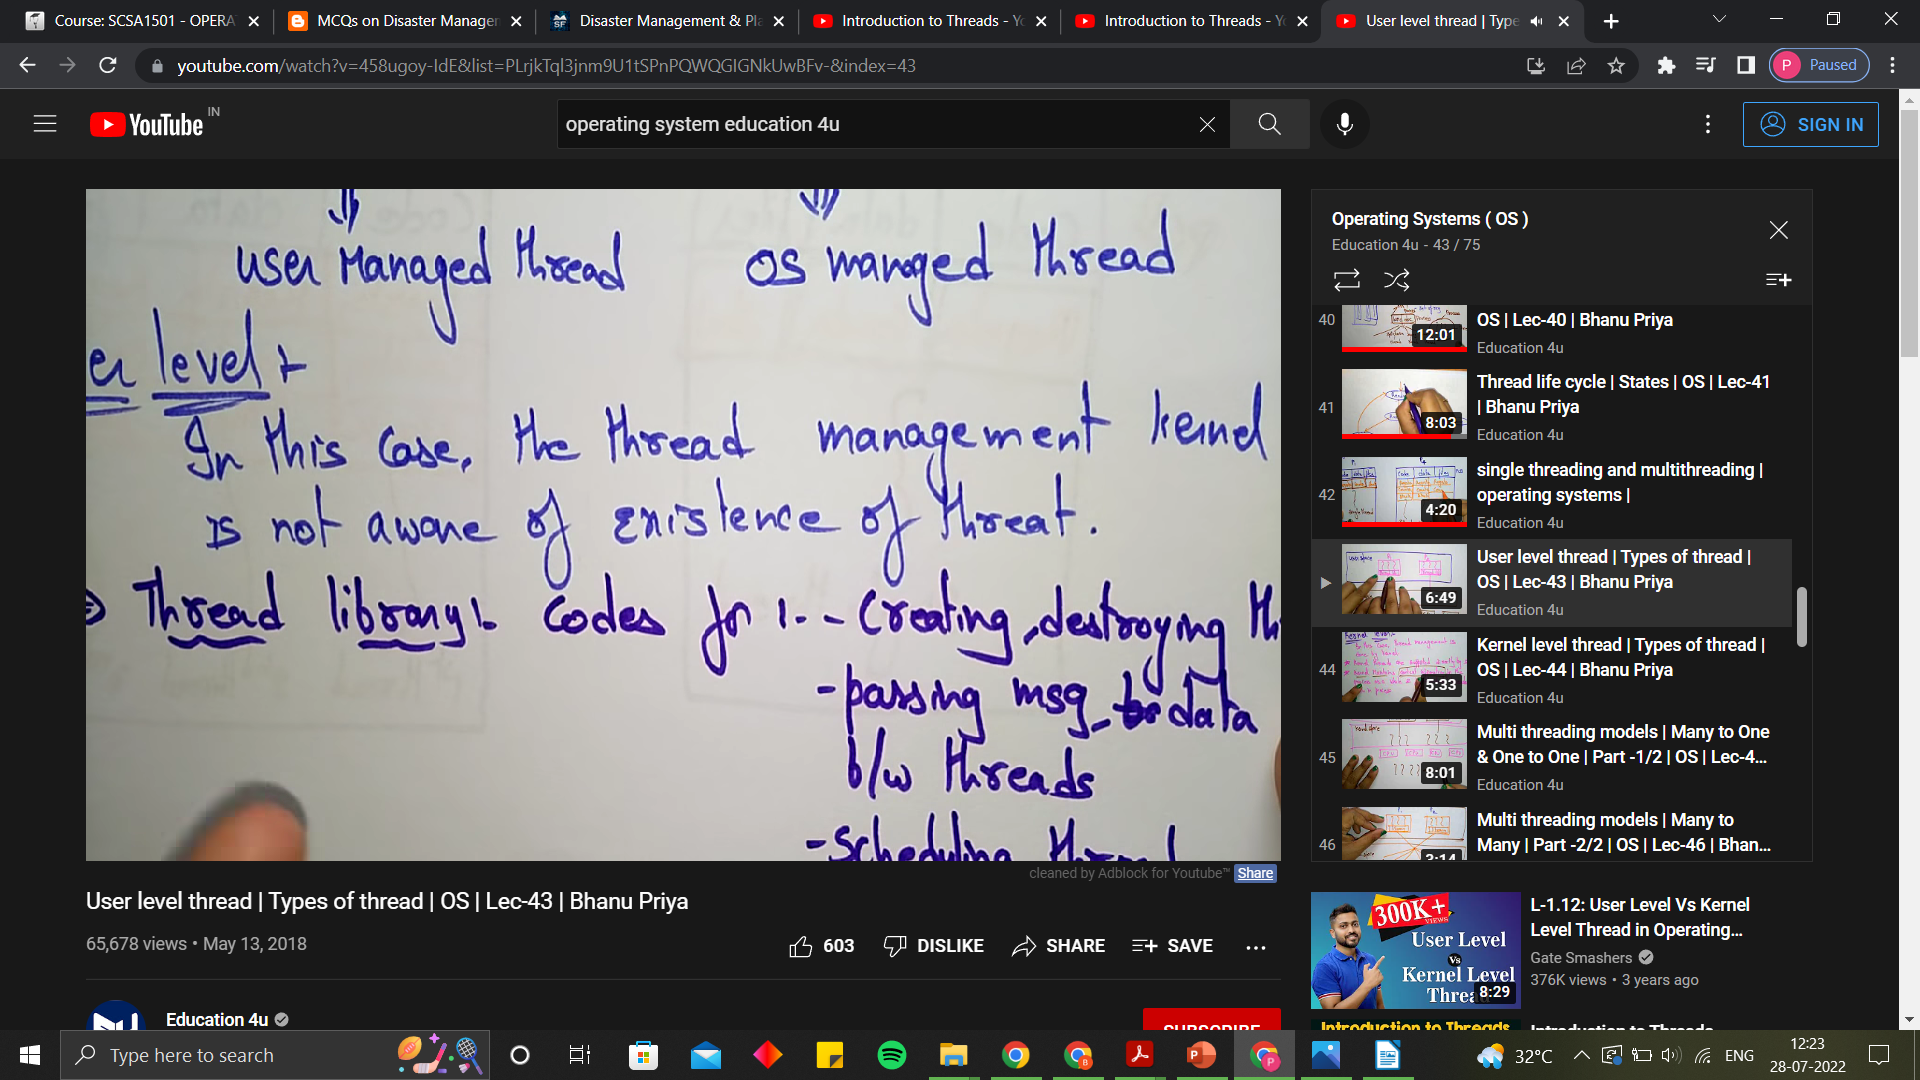 Course: SCSA1501 - OPERA
MCQs on Disaster Managem
Disaster Management & Pla
Introduction to Threads - Yo
Introduction to Threads - Yo
User level thread | Type
youtube.com/watch?v=458ugoy-IdE&list=PLrjkTql3jnm9U1tSPnPQWQGIGNkUwBFv-&index=43
P Paused
YouTube IN
operating system education 4u
SIGN IN
user Managed thread
OS manged thread
er level :-
In this case, the thread management kernel
is not aware of existence of threat.
Thread library :- Codes for :- - Creating, destroying th
- passing msg data
b/w threads
- Scheduling thread
cleaned by Adblock for Youtube™ Share
User level thread | Types of thread | OS | Lec-43 | Bhanu Priya
65,678 views • May 13, 2018
603 DISLIKE SHARE SAVE ...
Education 4u
SUBSCRIBE
Operating Systems ( OS )
Education 4u - 43 / 75
40
12:01
OS | Lec-40 | Bhanu Priya
Education 4u
41
8:03
Thread life cycle | States | OS | Lec-41
| Bhanu Priya
Education 4u
42
4:20
single threading and multithreading |
operating systems |
Education 4u
6:49
User level thread | Types of thread |
OS | Lec-43 | Bhanu Priya
Education 4u
44
5:33
Kernel level thread | Types of thread |
OS | Lec-44 | Bhanu Priya
Education 4u
45
8:01
Multi threading models | Many to One
& One to One | Part -1/2 | OS | Lec-4...
Education 4u
46
3:14
Multi threading models | Many to
Many | Part -2/2 | OS | Lec-46 | Bhan...
300K+
VIEWS
User Level
Vs
Kernel Level
Thread
8:29
L-1.12: User Level Vs Kernel
Level Thread in Operating...
Gate Smashers
376K views • 3 years ago
Introduction to Threads
Introduction to Threads
Type here to search
32°C
ENG
12:23
28-07-2022